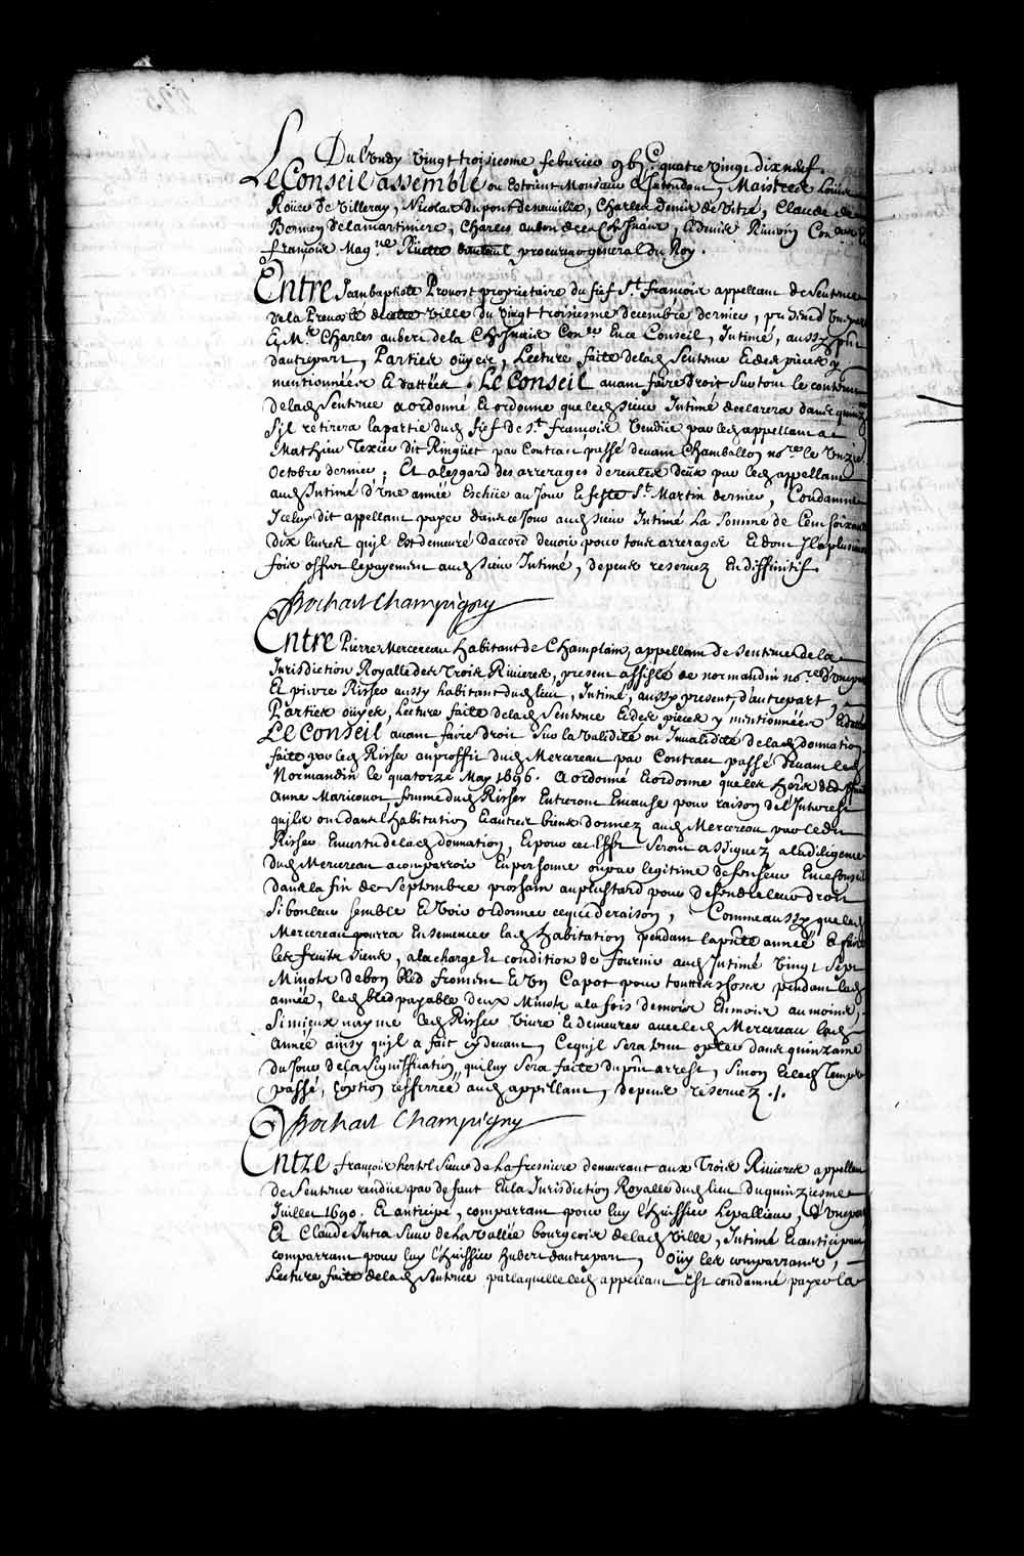 Du Lundy vingt troisiesme febvrier g bjC quatre vingt dix neuf.
Le Conseil assemblé ou Estoient Monsieur L'Intendant, Maistres Louis
Roüer de Villeray, Nicolas dupont de neuville, Charles Denis de Vitré, Claude de
Bermen de la martiniere, Charles aubert de la Chesnaie, Et denis Riverin Con.ers Et
françois Mag.ne Ruette procureur general du Roy.
Entre Jean baptiste Prevost proprietaire du fief S.t françois appellant de Sentence
de la Prevosté de ville du vingt troisiesme decembre dernier, present d'une part
Et M.e Charles aubert de la Chesnaie Con.er En ce Conseil, Intimé, aussy pnt
d'autre part, Parties oüyes, Lecture faite de lad Sentence Et des pieces y
mentionnées Et dattées. Le Conseil avant faire droit Sur tout le contenu
de lad Sentence a ordonné Et ordonne que led Sieur Intimé declarera dans quinz.e
S'il retirera la partie dud fief de S.t françois vendüe par led appellant a
Mathieu Texier dit Ringüet par Contract passé devant Chamballon no.re le unze
Octobre dernier. Et a l'esgard des arrerages de rentes deüs par led appellant
aud Intimé d'une année Escheüe au Jour Et feste S.t Martin dernier, Condamne
Iceluy dit appellant payer dans ce Jour aud Sieur Intimé La Somme de Cent soixante
dix livres qu'il Est demeuré d'accord devoir pour tous arrerages Et dont Il a plusieurs
fois offert le payement aud Sieur Intimé, depens reservez En diffinitif.
Bochart Champigny
Entre Pierre Mercereau habitant de Champlain, appellant de Sentence de la
Jurisdiction Royalle des Trois Rivieres, present assisté de normandin no.re d'une part
Et pierre Risser aussy habitant dud lieu, Intimé, aussy present, d'autre part,
Parties oüyes, Lecture faite de lad Sentence Et des pieces y mentionnées
Le Conseil avant faire droit Sur la validité ou Invalidité de lad donnation
faite par led Risser au proffit dud Mercereau par Contract passé devant led
Normandin le quatorze May 1696. a ordonné Et ordonne que les
Anne Maricour femme dud Risser Entreront En cause pour raison de l'Interest
qu'ils ont dans l'habitation Et autres biens donnez aud Mercereau par led
Risser En vertu de lad donnation, Et pour cet Effet Seront assignez a la diligence
dud Mercereau a comparroir En personne ou par legitime defenseur En ce Conseil
dans la fin de Septembre prochain au plus tard pour defendre leur droit
Si bon leur semble Et voir ordonner ce que de raison, Comme aussy que led
Mercereau pourra Ensemencer lad habitation pendant la pnte année Et faire
les fruits siens, a la charge Et condition de fournir aud Intimé Vingt Sept
Minots de bon bled froment Et Un Capot pour toutes choses pendant lad
année, led bled payable deux Minots a la fois de mois En mois au moins,
Si mieux n'ayme led Risser vivre Et demeurer avec led Mercereau lad
année ainsy qu'il a fait cy devant, Ce qu'il Sera tenu opter dans quinzaine
du Jour de la Signiffication qui luy Sera faite du pnt arrest, Sinon Et led Temps
passé, l'option refferrée aud appellant, depens reservez ./.
Bochart Champigny
Entre françois hertel Sieur de La fresniere demeurant aux Trois Rivieres appellant
de Sentence rendüe par defaut En la Jurisdiction Royalle dud lieu du quinziesme
Juillet 1690. Et anticipé, comparrant pour luy l'huissier Lepallieur, d'une part
Et Claude Jutra Sieur de La vallée bourgeois de lad ville, Intimé Et anticipant
comparrant pour luy l'huissier hubert d'autre part, Oüy les comparrans,
Lecture faite de lad Sentence par laquelle led appellant Est condamné payer la